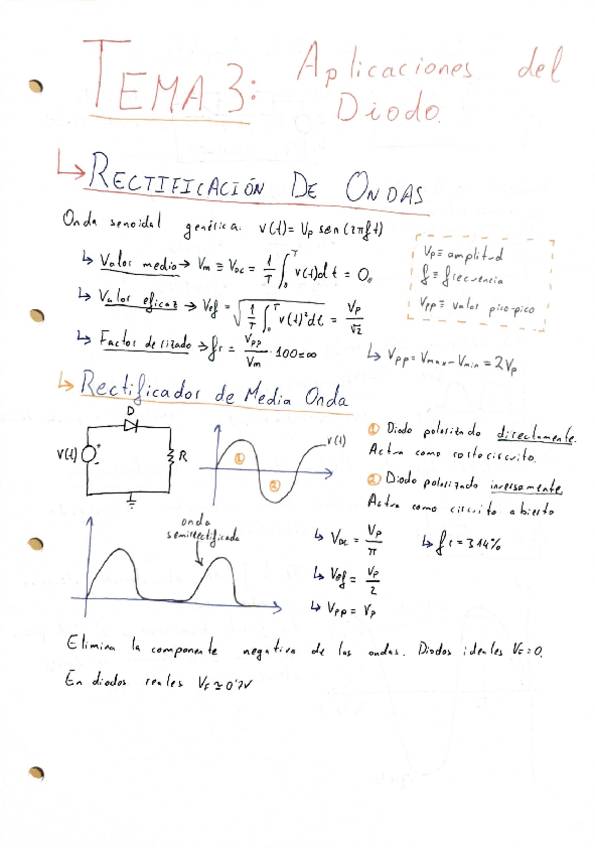 TEMA 3: Aplicaciones del
Diodo.
↳ RECTIFICACIÓN DE ONDAS
Onda senoidal genérica: v(t)= Vp sen(2πft)
↳ Valor medio → Vm ≡ VDC = 1/T ∫₀ᵀ v(t)dt = 0.
↳ Valor eficaz → Vef = √(1/T ∫₀ᵀ v(t)²dt) = Vp/√2
↳ Factor de rizado → fr = Vpp/Vm · 100 = ∞
Vp ≡ amplitud
f ≡ frecuencia
Vpp ≡ valor pico-pico
↳ Vpp = Vmax - Vmin = 2Vp
↳ Rectificador de Media Onda
D
V(t)
+
-
R
v(t)
1
2
① Diodo polarizado directamente.
Actva como cortocircuito.
② Diodo polarizado inversamente.
Actva como circuito abierto
onda
semirrectificada
↳ VDC = Vp/π
↳ fr = 314%
↳ Vef = Vp/2
↳ Vpp = Vp
Elimina la componente negativa de las ondas. Diodos ideales VF=0.
En diodos reales VF ≃ 0'7V